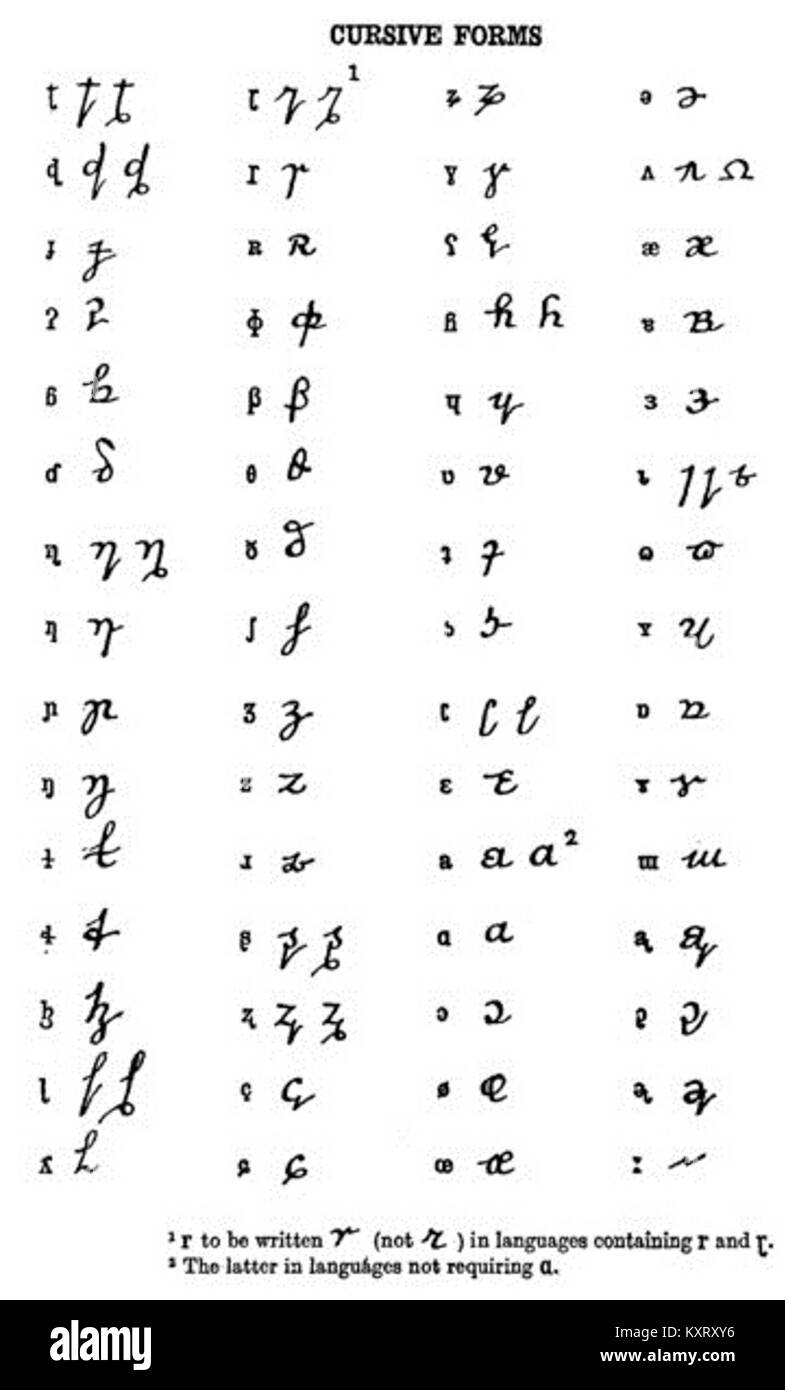 CURSIVE FORMS
ʈ ʈ ʈ ɽ ɽ ɽ¹ ʑ ʑ ə ə
ɖ ɖ ɖ ɼ ɼ ɣ ɣ ʌ ʌ ʌ
ɟ ɟ ʀ ʀ ʕ ʕ æ æ
ʔ ʔ ɸ ɸ ɦ ɦ ɦ ɐ ɐ
ɓ ɓ β β ɥ ɥ ɜ ɜ
ɗ ɗ θ θ ʋ ʋ ɩ ɩ ɩ ɩ
ɳ ɳ ɳ ð ð ʇ ʇ ɷ ɷ
ƞ ƞ ʃ ʃ ʖ ʖ ʏ ʏ
ɲ ɲ ʒ ʒ ʗ ʗ ʗ ɒ ɒ
ŋ ŋ z z ɛ ɛ ɤ ɤ
ɫ ɫ ɹ ɹ a a ɑ² ɯ ɯ
ɬ ɬ ʂ ʂ ʂ ɑ ɑ ą ą
ɮ ɮ ʐ ʐ ʐ ɔ ɔ ɔ̨ ɔ̨
ɭ ɭ ɭ ç ç ø ø ə̨ ə̨
ʎ ʎ ɕ ɕ œ œ ː ː
¹ r to be written r (not r) in languages containing r and ɽ.
² The latter in languages not requiring ɑ.
alamy
Image ID: KXRXY6
www.alamy.com